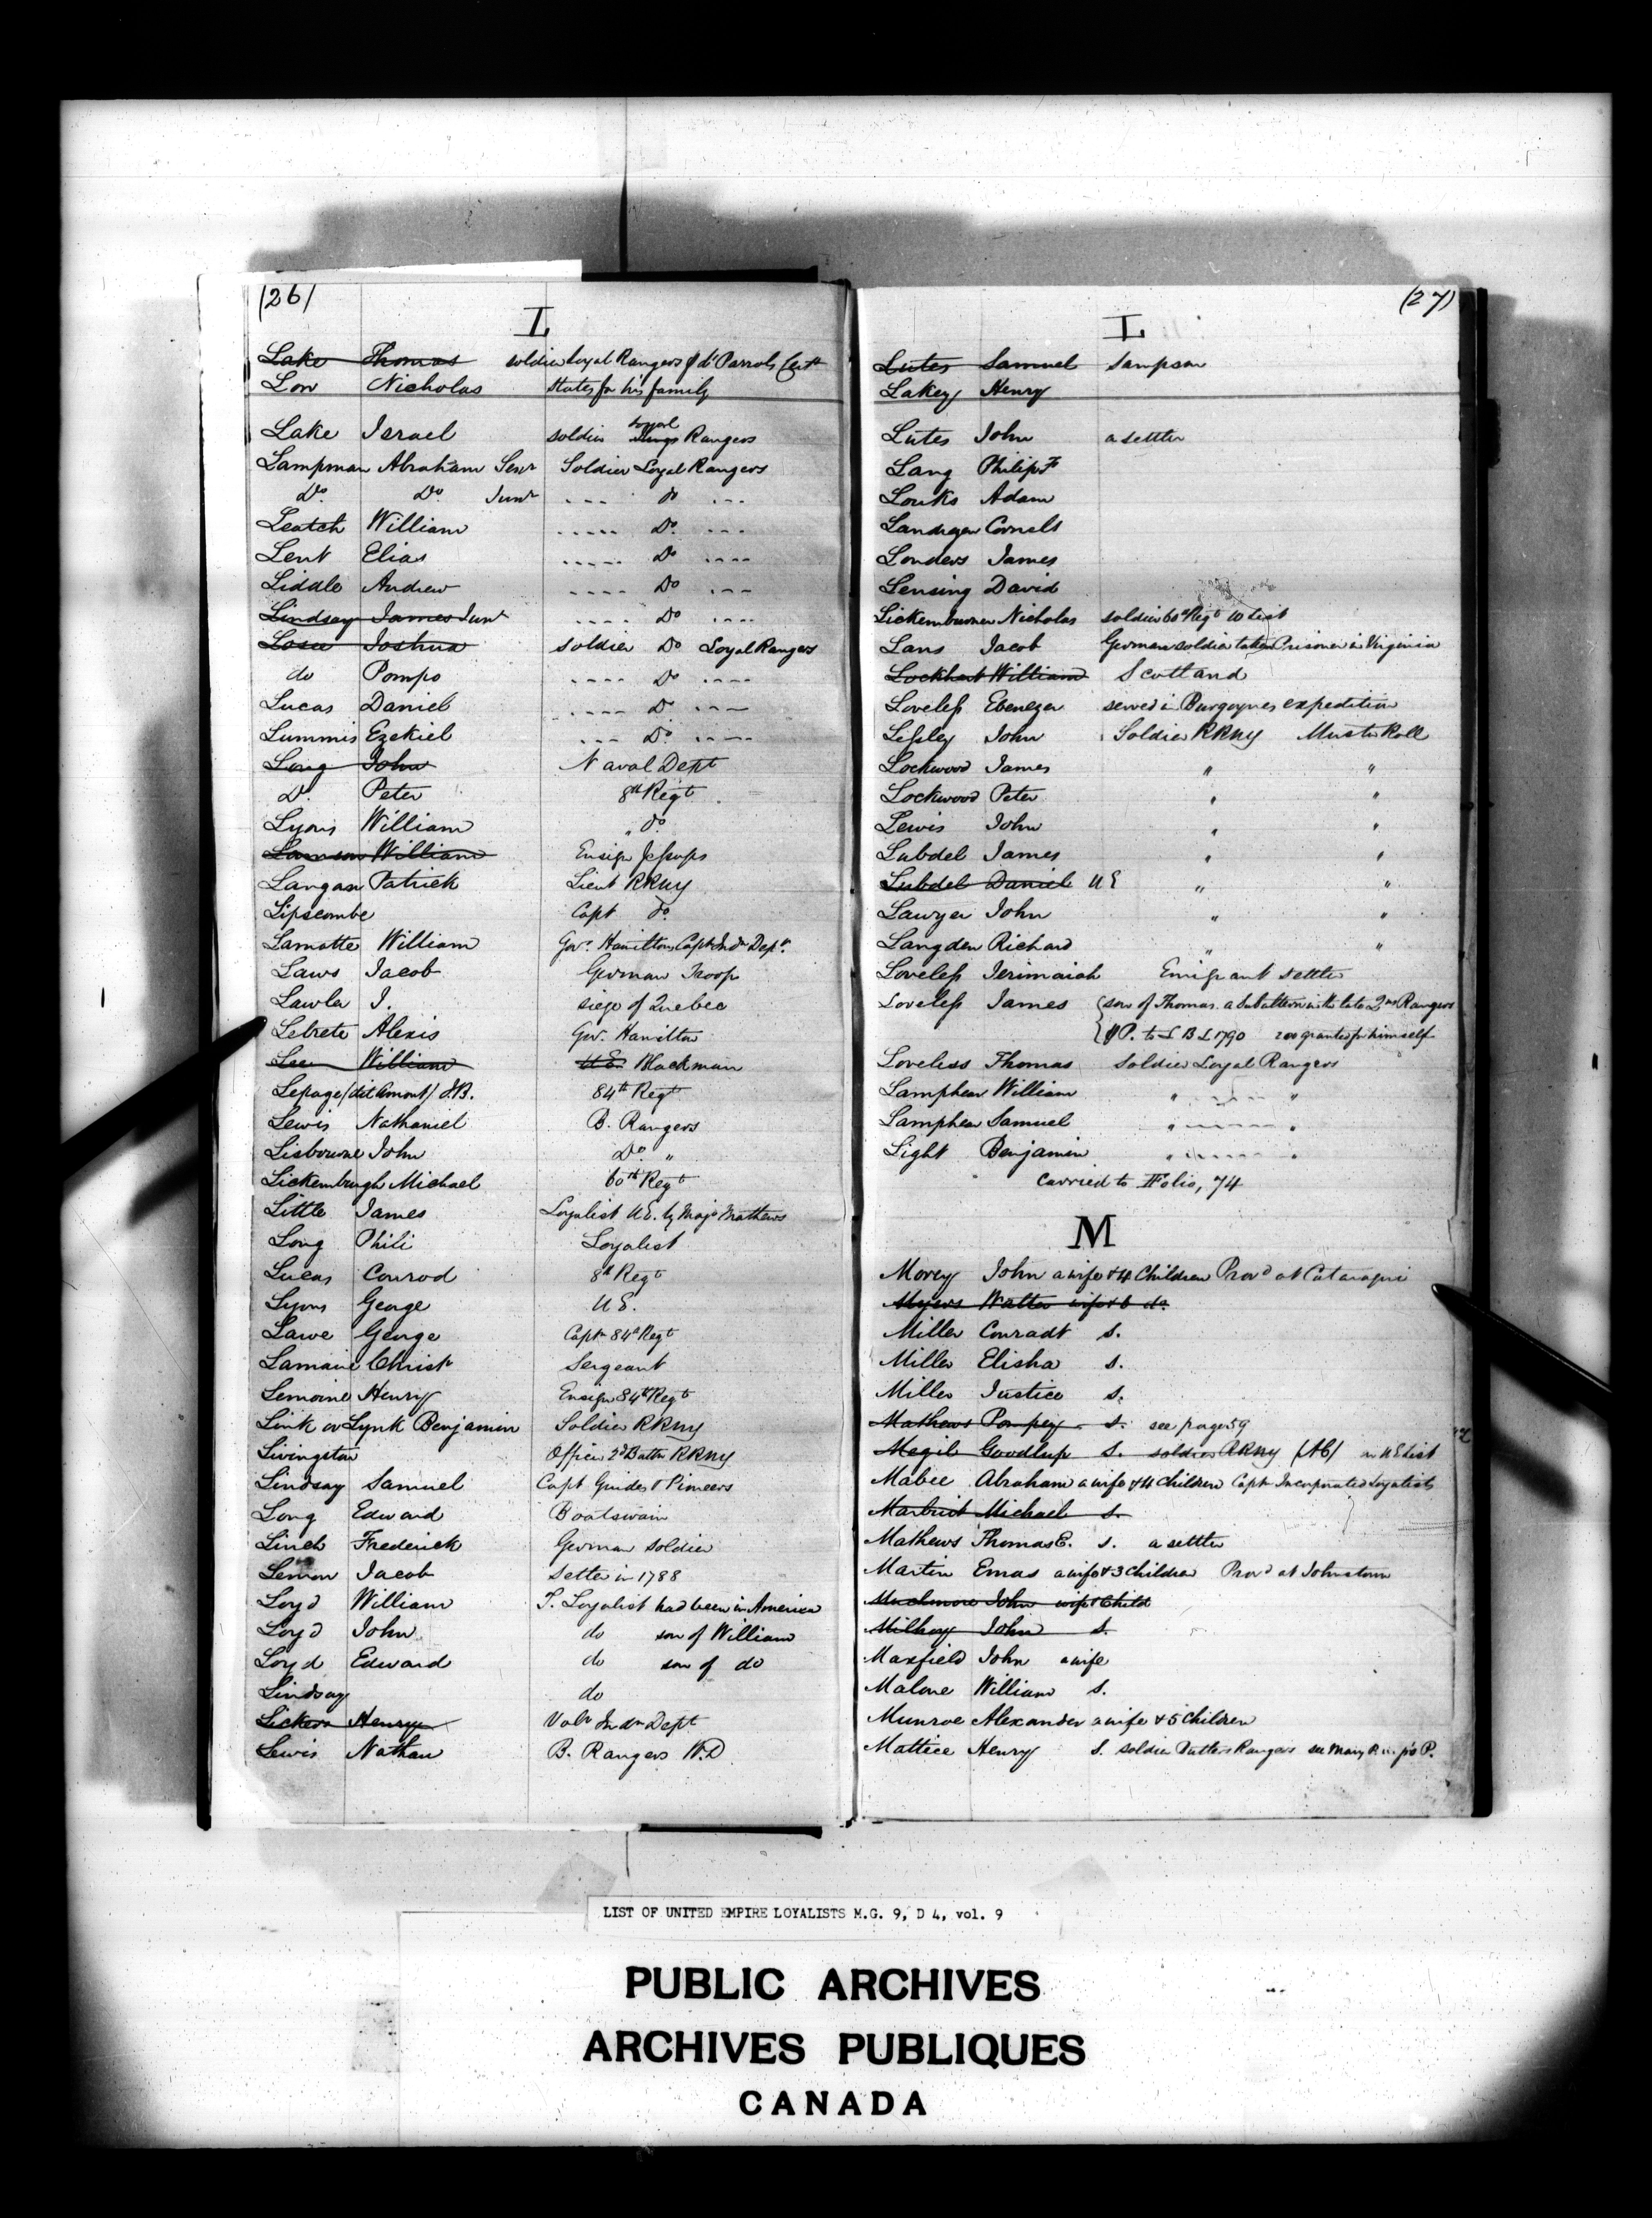 (26)
L
Lake Thomas soldier Loyal Rangers Parrots
Low Nicholas States for his family
Lake Israel soldier Loyal Kings Rangers
Lampman Abraham Senr Soldier Loyal Rangers
Do Do Junr --- do ---
Leatch William ----- Do ---
Lent Elias ----- Do ----
Liddle Andrew ---- Do ---
Lindsay James Junr ---- Do ----
Losee Joshua soldier Do Loyal Rangers
do Pompo ---- Do ----
Lucas Daniel ---- Do ---
Lummis Ezekiel --- Do ----
Long John Naval Dept
Do Peter 8th Regt
Lyons William " do
Lawson William Ensign Jessups
Langan Patrick Lieut RRNY
Lipscombe Capt do
Lamotte William Govr Hamilton Capt Indn Dept
Laws Jacob German Troop
Lawler J. siege of Quebec
Lebrete Alexis Govr Hamilton
Lee William U.E. Blackman
Lepage (dit Amont) J.B. 84th Regt
Lewis Nathaniel B. Rangers
Lisbourne John Do "
Lickemburgh Michael 60th Regt
Little James Loyalist U.E. by Majr Mathews
Long Phili Loyalist
Lucas Conrod 8th Regt
Lyons George U.E.
Lawe George Captn 84th Regt
Lamaine Christr Sergeant
Lemoine Henry Ensign 84th Regt
Link or Lynk Benjamin Soldier RRNY
Livingston Officer 2d Battn RRNY
Lindsay Samuel Capt Guides & Pioneers
Long Edward Boatswain
Linch Frederick German soldier
Lemon Jacob Settler in 1788
Loyd William S. Loyalist had been in America
Loyd John do son of William
Loyd Edward do son of do
Lindsay do
Lickers Henry Volr Indn Dept
Lewis Nathan B. Rangers W.D
(27)
L
Lutes Samuel Sampson
Lakey Henry
Lutes John a settler
Lang Philip F
Louks Adam
Landegar Cornels
Londers James
Lensing David
Lickemburner Nicholas soldier 60th Regt W List
Lans Jacob German soldier taken Prisoner in Virginia
Lockhart William Scotland
Loveless Ebenezer served in Burgoynes expedition
Lessley John Soldier RRNY Muster Roll
Lockwood James " "
Lockwood Peter " "
Lewis John " "
Lubdel James " "
Lubdel Daniel U E " "
Lawyer John " "
Langden Richard " "
Loveless Jerimaiah Emigrant settler
Loveless James (son of Thomas. a Subaltern in the late 2nd Rangers
P. to L B L 1790 200 granted for himself
Loveless Thomas Soldier Loyal Rangers
Lamphear William " ----- "
Lamphear Samuel " ----- "
Light Benjamin " ----- "
Carried to Folio, 74
M
Morey John a wife & 4 Children Provd at Cataraqui
Myers Walter wife & 6 do
Miller Conradt S.
Miller Elisha S.
Miller Justice S.
Mathews Pompey S. see page 59
Megil Goodlup S. soldier RRNY in UE List
Mabee Abraham a wife & 4 Children Capt Incorporated Loyalists
Marbriot Michael S.
Mathews Thomas E. S. a settler
Martin Emas a wife & 3 Children Provd at Johnstown
Muchmore John wife & Child
Milhoy John S.
Maxfield John a wife
Malone William S.
Munroe Alexander a wife & 5 Children
Mattice Henry S. soldier Butlers Rangers see Mary P.
LIST OF UNITED EMPIRE LOYALISTS M.G. 9, D 4, vol. 9
PUBLIC ARCHIVES
ARCHIVES PUBLIQUES
CANADA